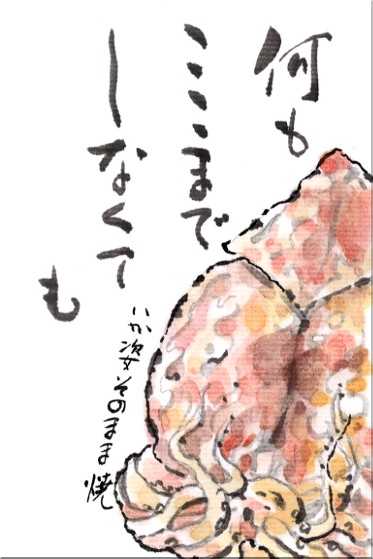 何も
ここまで
しなくて
も
いか姿そのまま焼